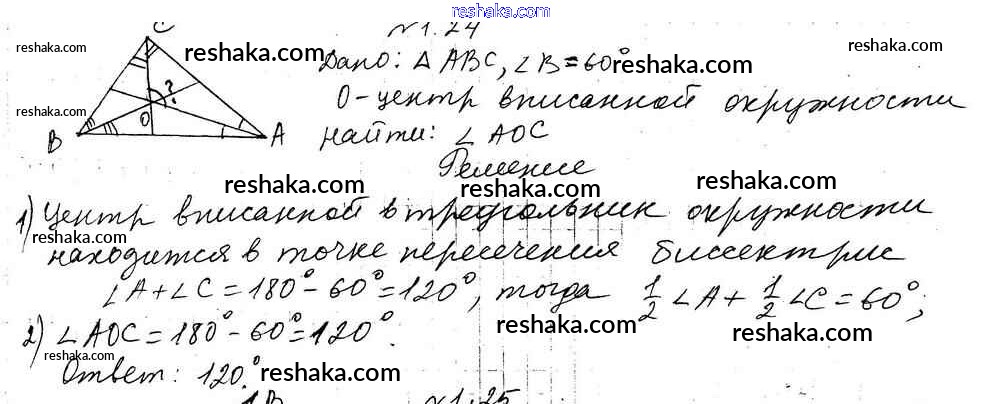 reshaka.com
C
№1.24
reshaka.com reshaka.com
Дано: △ ABC, ∠B = 60° reshaka.com
reshaka.com
O - центр вписанной окружности
?
O
B A
найти: ∠ AOC
Решение
reshaka.com reshaka.com
1) Центр вписанной в треугольник окружности
reshaka.com
находится в точке пересечения биссектрис
∠A + ∠C = 180° - 60° = 120°, тогда 1/2 ∠A + 1/2 ∠C = 60°;
reshaka.com reshaka.com
2) ∠AOC = 180° - 60° = 120°.
reshaka.com
Ответ: 120.° reshaka.com
reshaka.com
1B №1.25